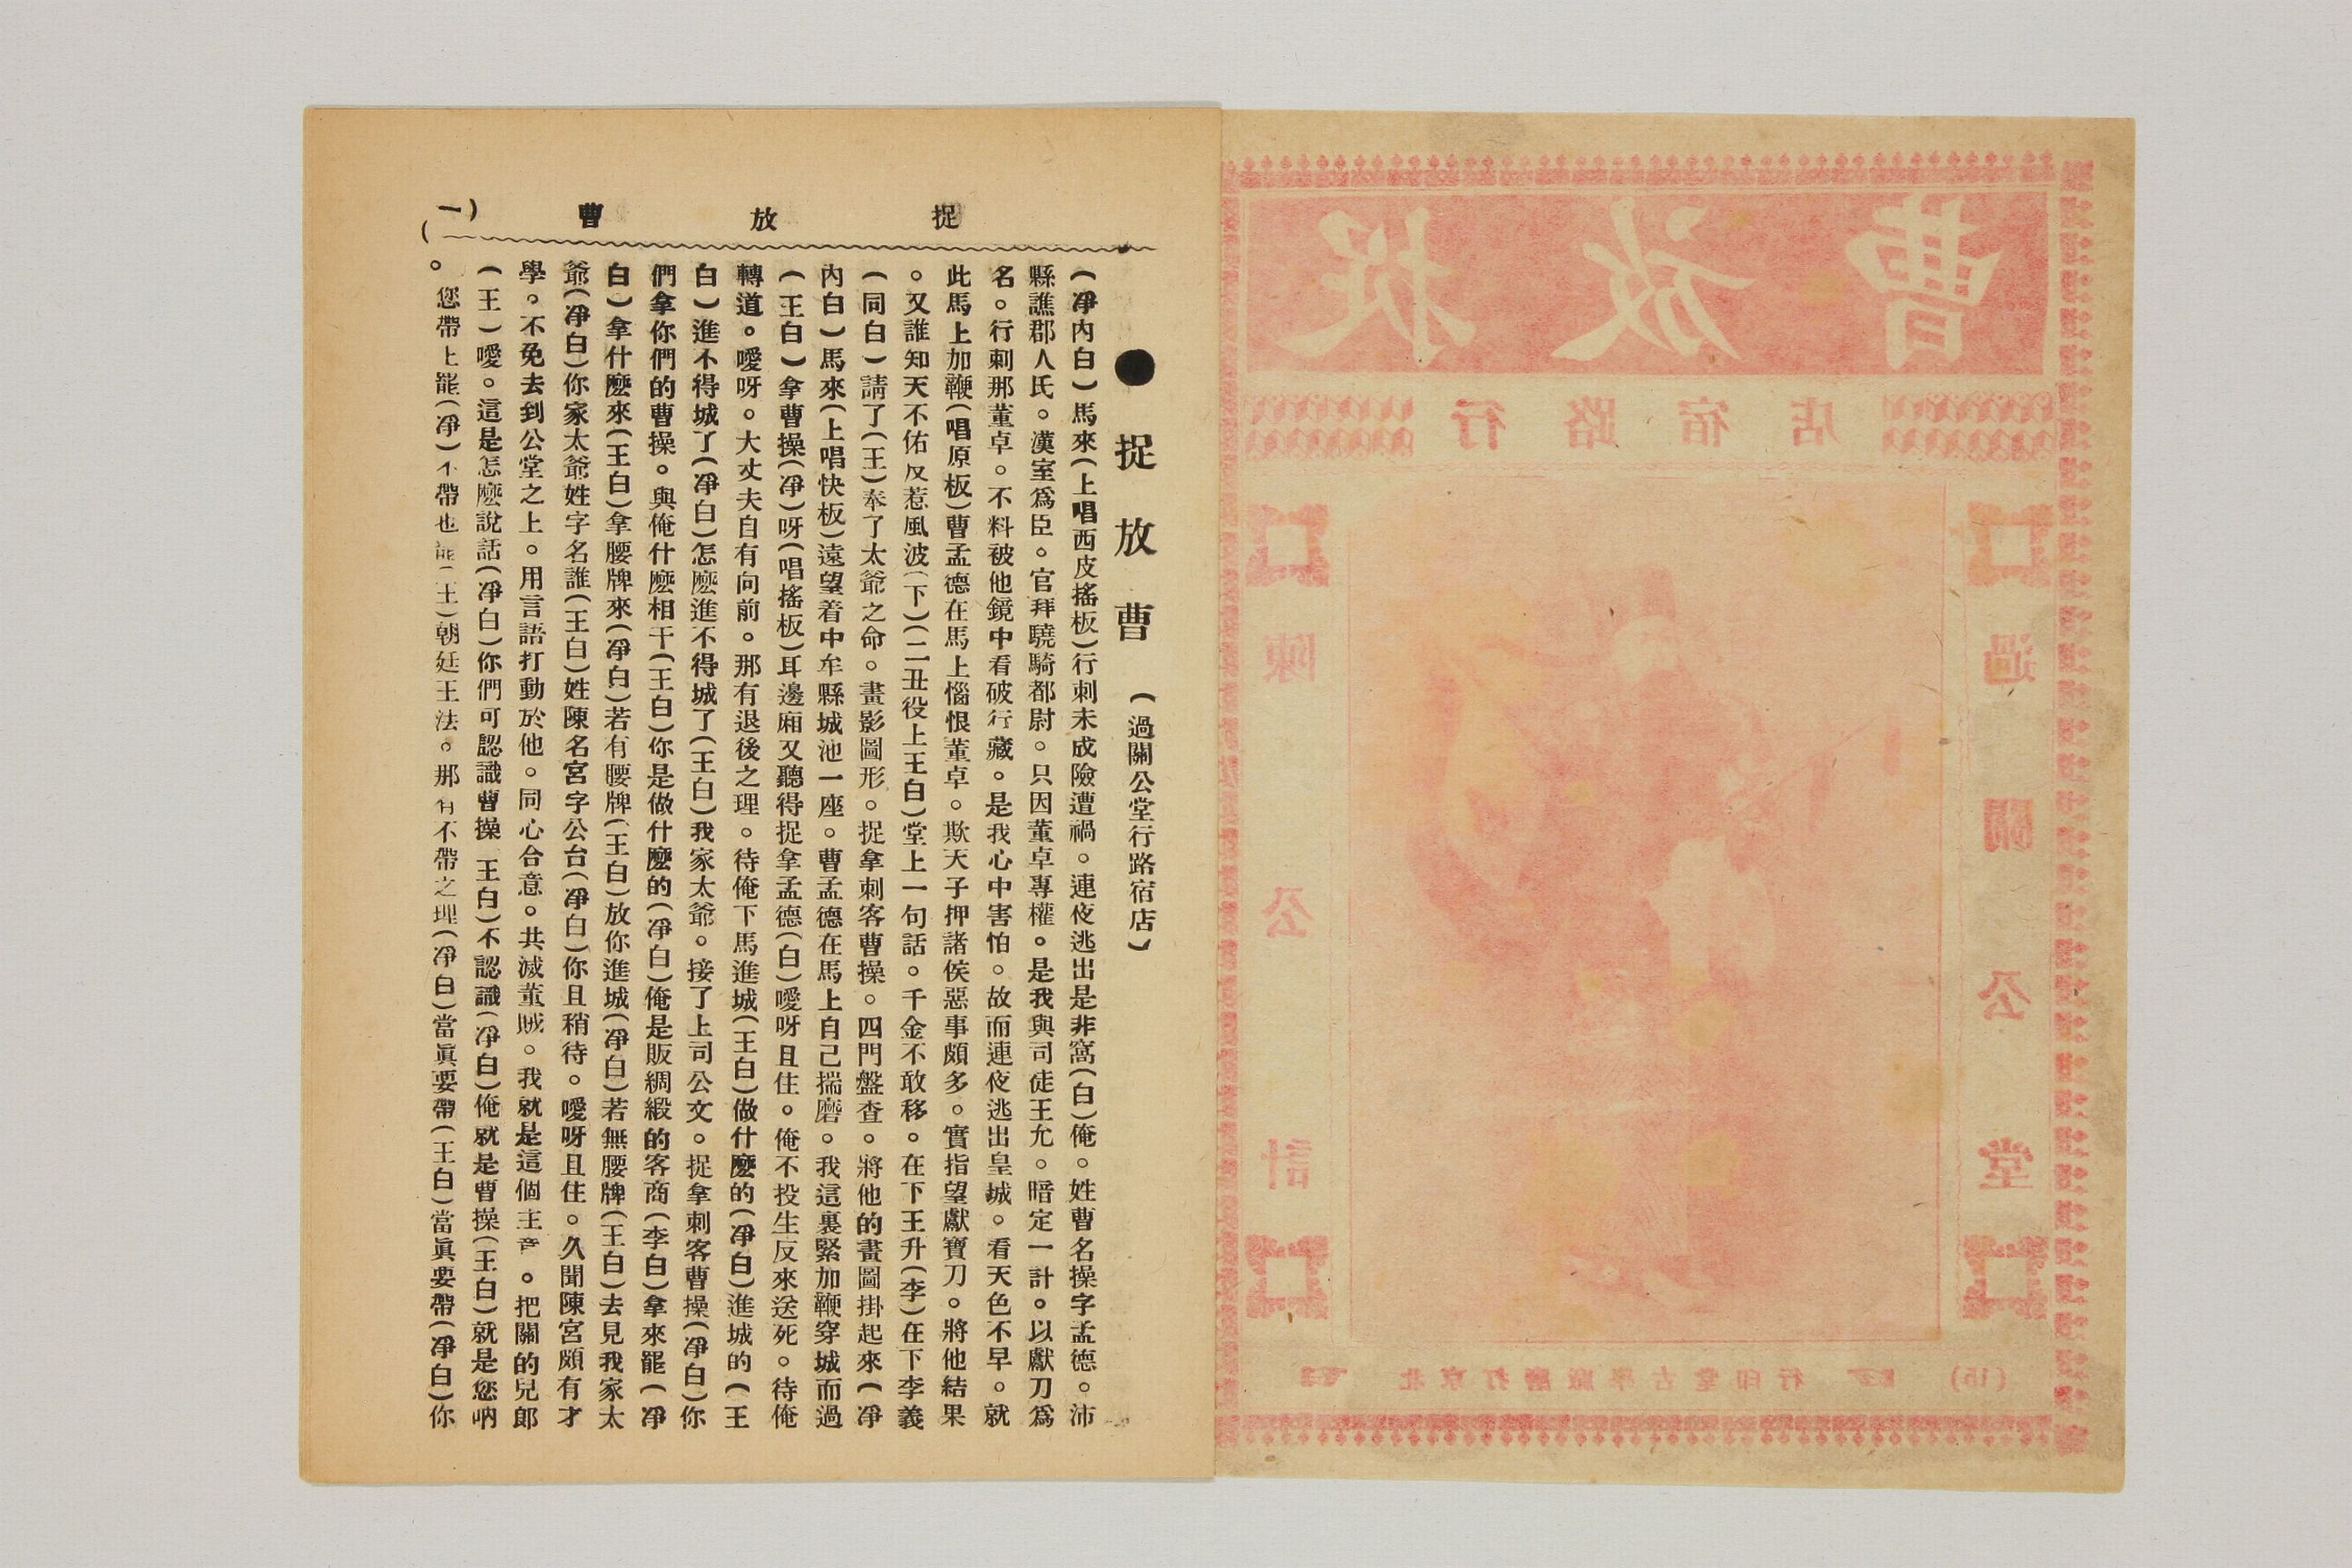 捉放曹
(一)
●捉放曹(過關公堂行路宿店)
(凈內白)馬來(上唱西皮搖板)行刺未成險遭禍。連夜逃出是非窩(白)俺。姓曹名操字孟德。沛
縣譙郡人氏。漢室爲臣。官拜驍騎都尉。只因董卓專權。是我與司徒王允。暗定一計。以獻刀爲
名。行刺那董卓。不料被他鏡中看破行藏。是我心中害怕。故而連夜逃出皇城。看天色不早。就
此馬上加鞭(唱原板)曹孟德在馬上惱恨董卓。欺天子押諸侯惡事頗多。實指望獻寶刀。將他結果
。又誰知天不佑反惹風波(下)(二丑役上王白)堂上一句話。千金不敢移。在下王升(李)在下李義
(同白)請了(王)奉了太爺之命。畫影圖形。捉拿刺客曹操。四門盤查。將他的畫圖掛起來(凈
內白)馬來(上唱快板)遠望着中牟縣城池一座。曹孟德在馬上自己揣磨。我這裏緊加鞭穿城而過
(王白)拿曹操(凈)呀(唱搖板)耳邊廂又聽得捉拿孟德(白)噯呀且住。俺不投生反來送死。待俺
轉道。噯呀。大丈夫自有向前。那有退後之理。待俺下馬進城(王白)做什麼的(凈白)進城的(王
白)進不得城了(凈白)怎麼進不得城了(王白)我家太爺。接了上司公文。捉拿刺客曹操(凈白)你
們拿你們的曹操。與俺什麼相干(王白)你是做什麼的(凈白)俺是販綢緞的客商(李白)拿來罷(凈
白)拿什麼來(王白)拿腰牌來(凈白)若有腰牌(王白)放你進城(凈白)若無腰牌(王白)去見我家太
爺(凈白)你家太爺姓字名誰(王白)姓陳名宮字公台(凈白)你且稍待。噯呀且住。久聞陳宮頗有才
學。不免去到公堂之上。用言語打動於他。同心合意。共滅董賊。我就是這個主意。把關的兒郎
(王)噯。這是怎麼說話(凈白)你們可認識曹操 王白)不認識(凈白)俺就是曹操(王白)就是您吶
。您帶上罷(凈)不帶也罷(王)朝廷王法。那有不帶之理(凈白)當眞要帶(王白)當眞要帶(凈白)你
捉放曹
行路宿店
過關公堂
陳公計
(15)
北京打磨廠學古堂印行